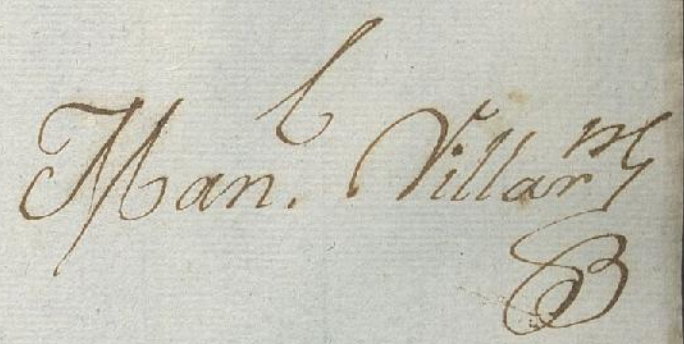 Man.ˡ Villar